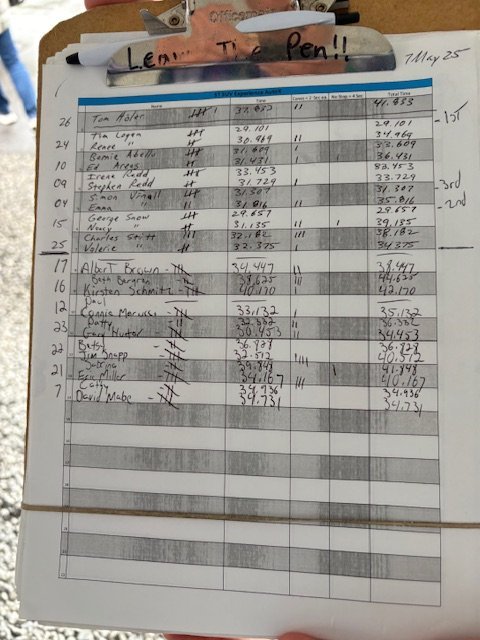 Officemate
Leave The Pen!!
7 May 25
ST SUV Experience AutoX
Name Time Cones = 2 Sec ea. No Stop = 4 Sec Total Time
26 Tom Hofer 37.853 11 41.853
Tim Logen 29.101 29.101 - 1st
24 Renee " 30.969 11 34.969
Bernie Abello 31.609 1 33.609
10 Ed Areys 31.431 36.431
Irene Rudd 33.453 33.453
09 Stephen Rudd 31.729 1 33.729
Simon 31.307 31.307 - 3rd
04 Emma " 31.816 11 35.816
George Snow 29.657 29.657 - 2nd
15 Nancy " 31.135 11 1 39.135
Charles Stitt 32.182 111 38.182
25 Valerie " 32.375 1 34.375
17 Albert Brown - 34.447 11 38.447
Dean 38.625 111 44.625
16 Kirsten Schmitz - 40.170 1 42.170
12 Paul
Connie - 33.132 1 35.132
Patty 32.552 11 36.552
23 Gary - 30.453 11 34.453
Betsy 36.828 36.828
22 Jim Snapp - 32.512 1111 40.512
Sabrina 41.848
21 Eric Miller - 34.167 111 40.167
Cathy 34.936 34.936
7 David Mabe - 34.731 34.731